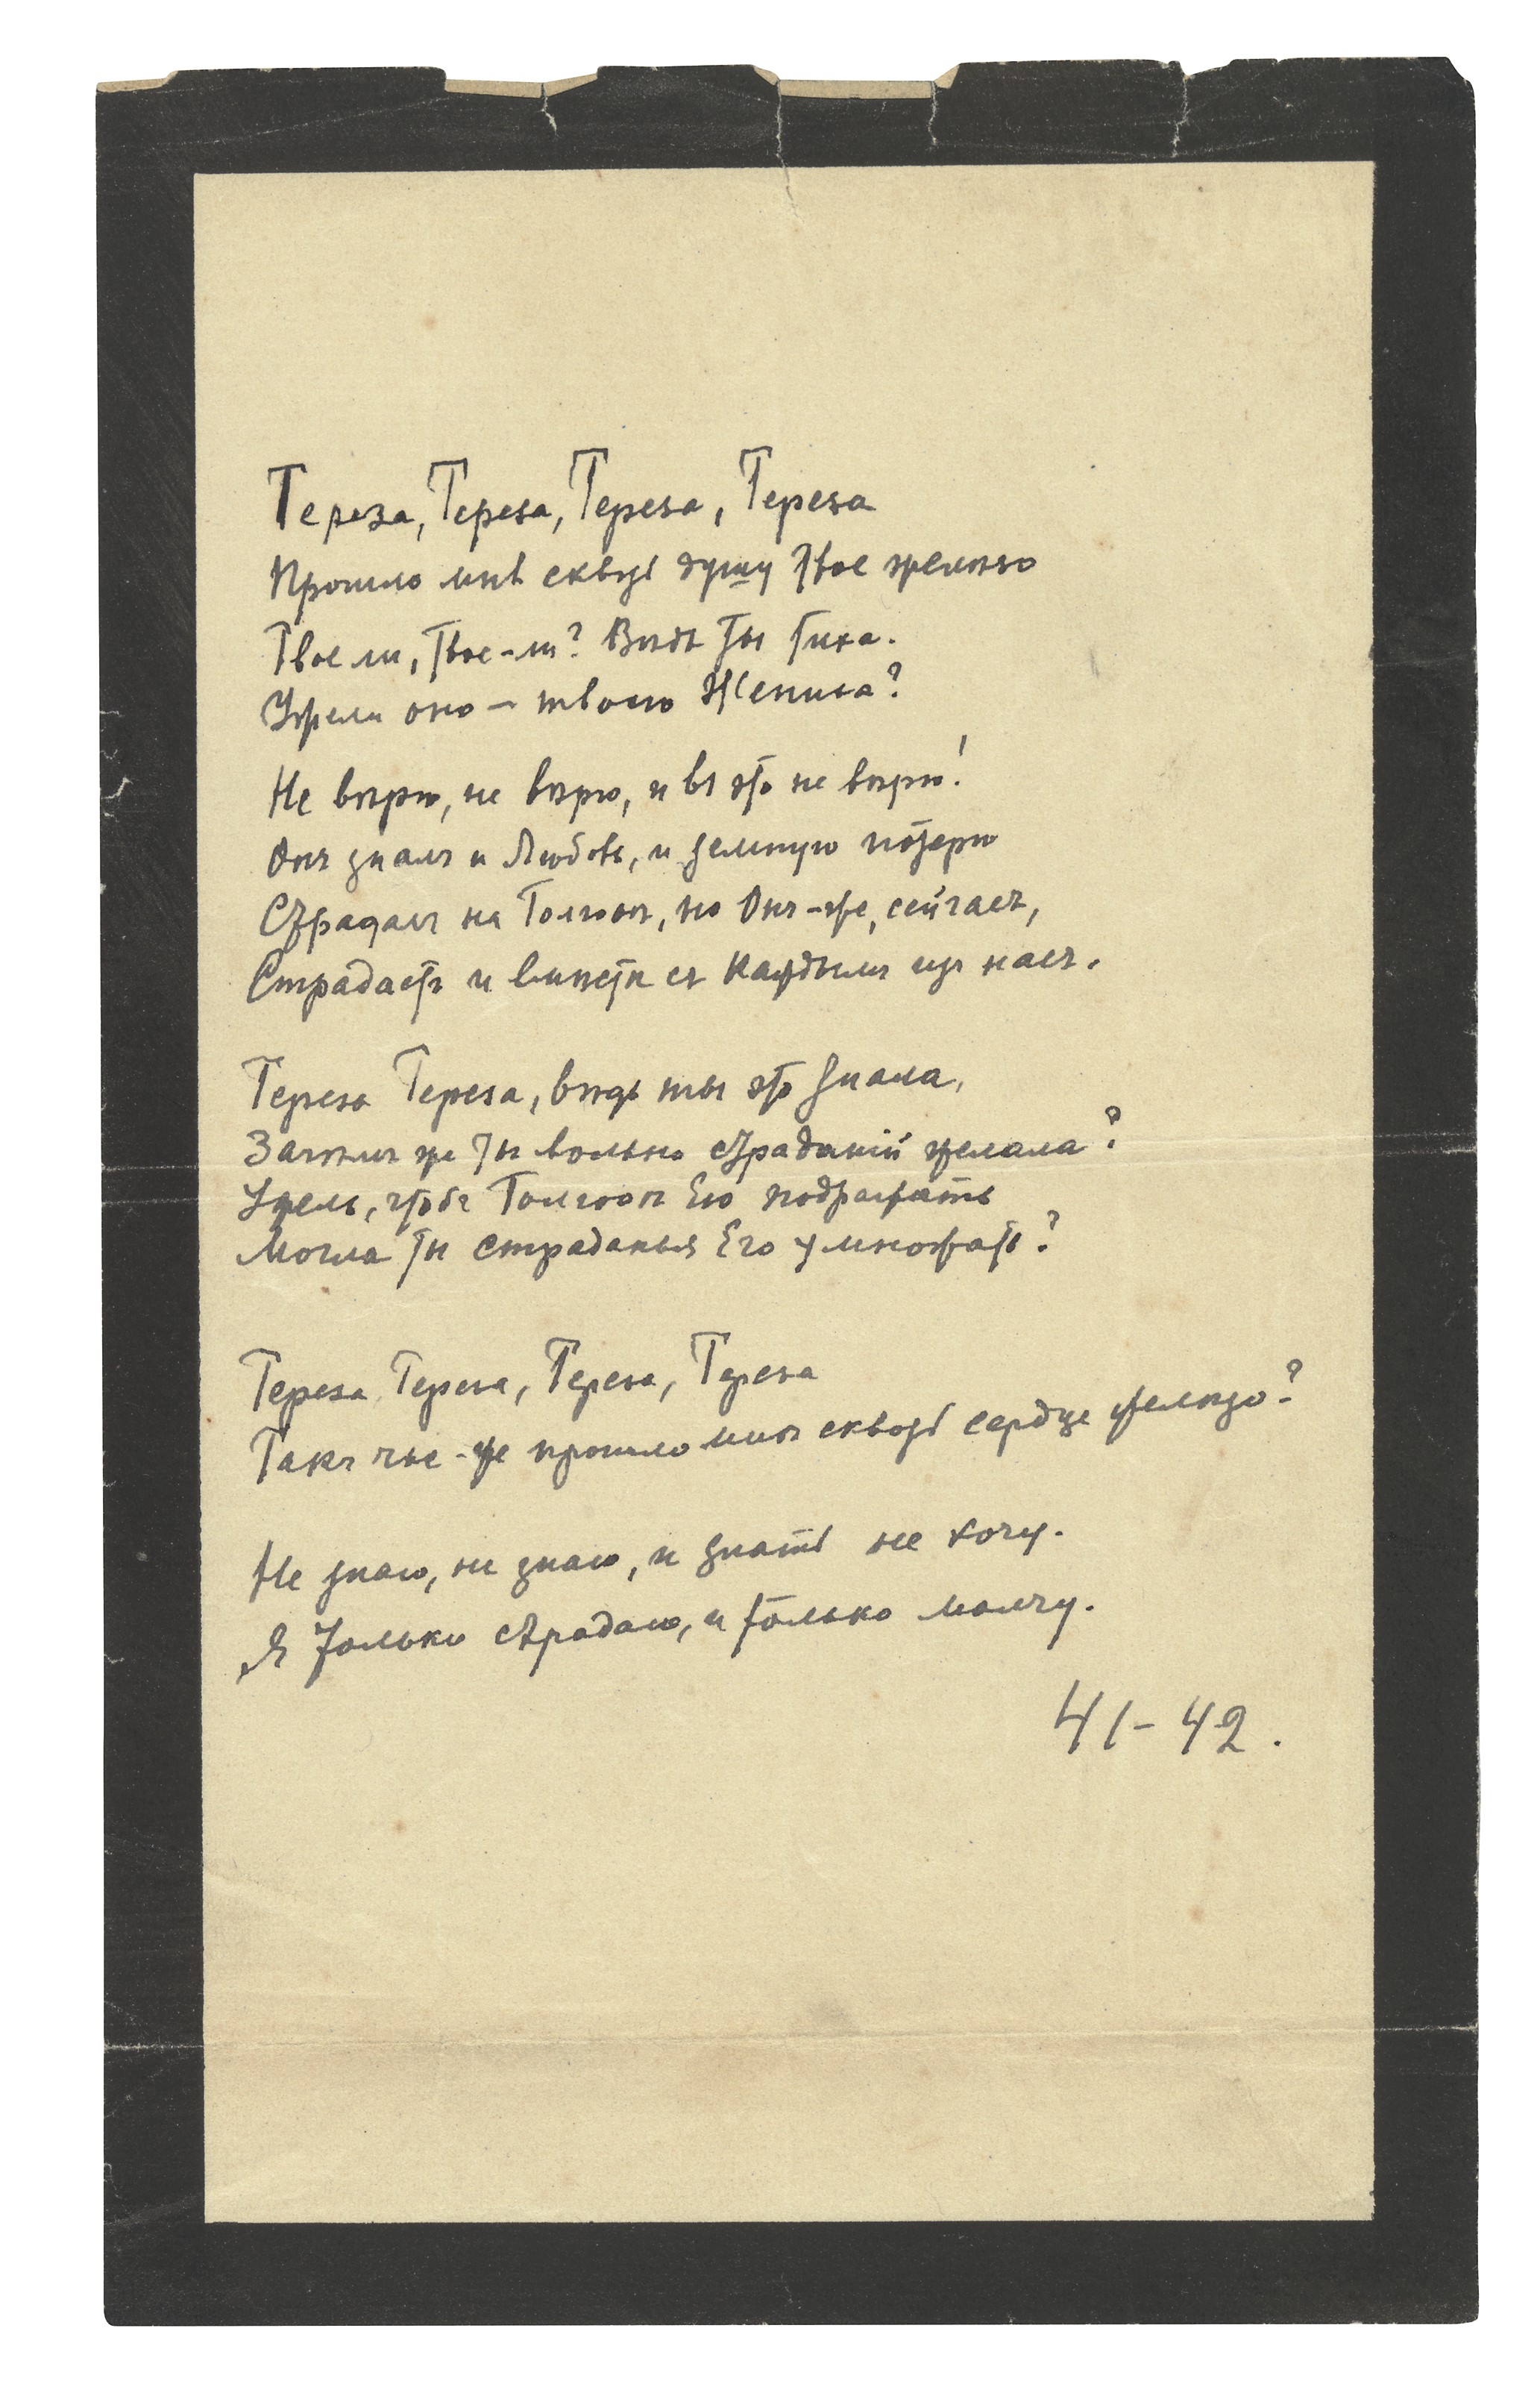 Тереза, Тереза, Тереза, Тереза
Прошло мнѣ сквозь душу твое желѣзо
Твое ли, твое-ли? Вѣдь ты тиха.
Ужели оно – твоего Жениха?
Не вѣрю, не вѣрю, и въ это не вѣрю!
Онъ зналъ и Любовь, и земную потерю
Страдалъ на Голгоѳѣ, но Онъ-же, сейчасъ,
Страдаетъ и вмѣстѣ съ каждымъ изъ насъ.
Тереза Тереза, вѣдь ты это знала,
Зачѣмъ же ты вольно страданій желала?
Ужель, чтобъ Голгоѳѣ Его подражать
Могла ты страданья Его умножать?
Тереза Тереза, Тереза, Тереза
Такъ чье-же прошло мнѣ сквозь сердце желѣзо?
Не знаю, не знаю, и знать не хочу.
Я только страдаю, и только молчу.
41-42.